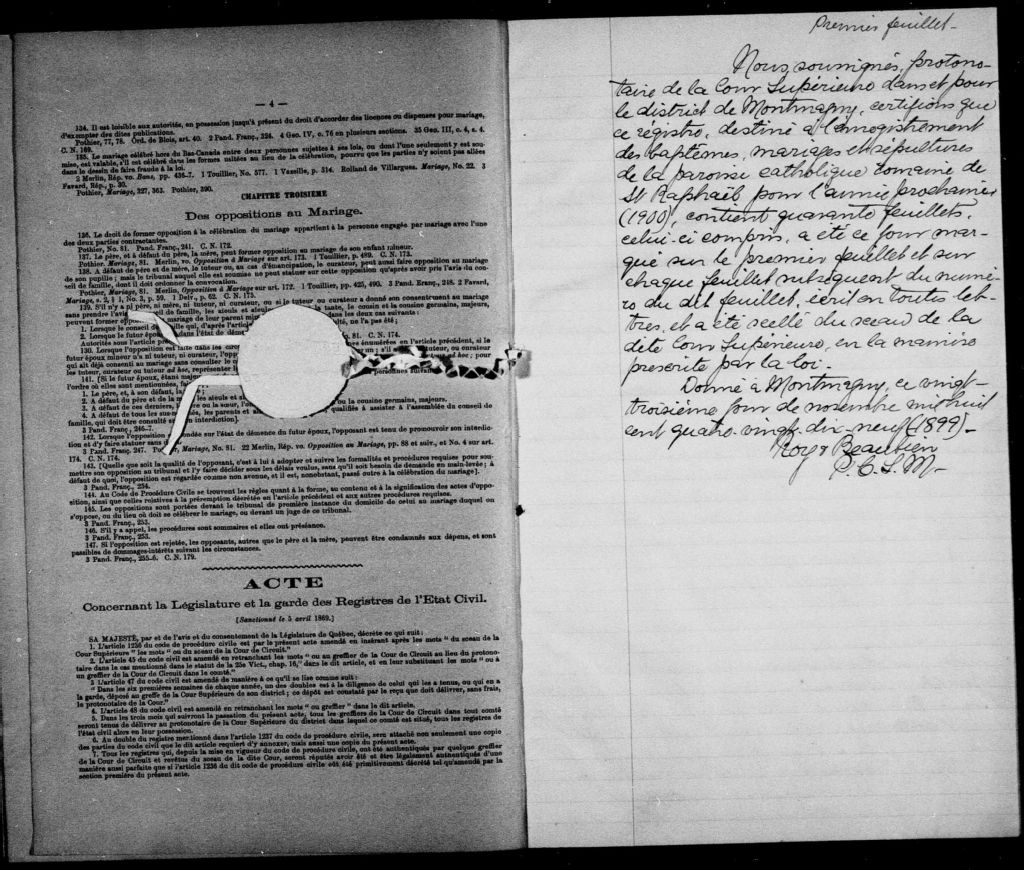 — 4 —
134. Il est loisible aux autorités, en possession jusqu'à présent du droit d'accorder des licences ou dispenses pour mariage,
d'exempter des dites publications.
Pothier, 77, 78. Ord. de Blois, art. 40. 2 Pand. Franç., 224. 4 Geo. IV, c. 76 en plusieurs sections. 35 Geo. III, c. 4, s. 4.
C. N. 169.
135. Le mariage célébré hors du Bas-Canada entre deux personnes sujettes à ses lois, ou dont l'une seulement y est sou-
mise, est valable, s'il est célébré dans les formes usitées au lieu de la célébration, pourvu que les parties n'y soient pas allées
dans le dessin de faire fraude à la loi.
2 Merlin, Rép. vo. Bans, pp. 436-7. 1 Touillier, No. 577. 1 Vazeille, p. 314. Rolland de Villargues. Mariage, No. 22. 3
Favard, Rép., p. 30.
Pothier, Mariage, 227, 363. Pothier, 390.
CHAPITRE TROISIÈME
Des oppositions au Mariage.
136. Le droit de former opposition à la célébration du mariage appartient à la personne engagée par mariage avec l'une
des deux parties contractantes.
Pothier, No. 81. Pand. Franç., 241. C. N. 172.
137. Le père, et à défaut du père, la mère, peut former opposition au mariage de son enfant mineur.
Pothier, Mariage, 81. Merlin, vo. Opposition à Mariage sur art. 173. 1 Touillier, p. 489. C. N. 173.
138. A défaut de père et de mère, le tuteur, ou, au cas d'émancipation, le curateur, peut aussi faire opposition au mariage
de son pupille ; mais le tribunal auquel elle est soumise ne peut statuer sur cette opposition qu'après avoir pris l'avis du con-
seil de famille, dont il doit ordonner la convocation.
Pothier, Mariage, 81. Merlin, Opposition à Mariage sur art. 172. 1 Touillier, pp. 425, 490. 3 Pand. Franç., 248. 2 Favard,
Mariage, s. 2, § 1, No. 3, p. 59. 1 Delv., p. 62. C. N. 175.
139. S'il n'y a ni père, ni mère, ni tuteur, ni curateur, ou si le tuteur ou curateur a donné son consentement au mariage
sans prendre l'avis du conseil de famille, les aïeuls et aïeules, cousin et la cousine germains, majeurs,
peuvent former opposition mariage de leur parent mi dans les deux cas suivants :
1. Lorsque le conseil de famille qui, d'après l'articl ulté, ne l'a pas été ;
2. Lorsque le futur époux dans l'état de démen
Autorités sous l'article pré . 81. C. N. 174.
130. Lorsque l'opposition est faite dans les circ énumérées en l'article précédent, si le
futur époux mineur n'a ni tuteur, ni curateur, l'oppo s'il a un tuteur, ou curateur
qui ait déjà consenti au mariage sans consulter le c ad hoc ; pour
les tuteur, curateur ou tuteur ad hoc, représenter le
141. [Si le futur époux, étant majeur personnes suivantes
l'ordre où elles sont mentionnées,
1. Le père, et, à son défaut, la
2. A défaut du père et de la mère, les aïeuls et aïeules
3. A défaut de ces derniers, ou la sœur, l'oncle ou la cousine germains, majeurs.
4. A défaut de tous les sus- les parents et al qualifiés à assister à l'assemblée du conseil de
famille, qui doit être consulté sur interdiction].
3 Pand. Franç., 246-7.
142. Lorsque l'opposition est fondée sur l'état de démence du futur époux, l'opposant est tenu de promouvoir son interdic-
tion et d'y faire statuer sans d
3 Pand. Franç. 247. Po , Mariage, No. 81. 22 Merlin, Rép. vo. Opposition au Mariage, pp. 88 et suiv., et No. 4 sur art.
174. C. N. 174.
143. [Quelle que soit la qualité de l'opposant, c'est à lui à adopter et suivre les formalités et procédures requises pour sou-
mettre son opposition au tribunal et l'y faire décider sous les délais voulus, sans qu'il soit besoin de demande en main-levée ; à
défaut de quoi, l'opposition est regardée comme non avenue, et il est, nonobstant, passé outre à la célébration du mariage].
3 Pand. Franç., 254.
144. Au Code de Procédure Civile se trouvent les règles quant à la forme, au contenu et à la signification des actes d'oppo-
sition, ainsi que celles relatives à la préremption décrétée en l'article précédent et aux autres procédures requises.
145. Les oppositions sont portées devant le tribunal de première instance du domicile de celui au mariage duquel on
s'oppose, ou du lieu où doit se célébrer le mariage, ou devant un juge de ce tribunal.
3 Pand. Franç., 253.
146. S'il y a appel, les procédures sont sommaires et elles ont préséance.
3 Pand. Franç., 253.
147. Si l'opposition est rejetée, les opposants, autres que le père et la mère, peuvent être condamnés aux dépens, et sont
passibles de dommages-intérêts suivant les circonstances.
3 Pand. Franç., 255-6. C. N. 179.
ACTE
Concernant la Législature et la garde des Registres de l'Etat Civil.
[Sanctionné le 5 avril 1869.]
SA MAJESTÉ, par et de l'avis et du consentement de la Législature de Québec, décrète ce qui suit :
1. L'article 1236 du code de procédure civile est par le présent acte amendé en insérant après les mots " du sceau de la
Cour Supérieure " les mots " ou du sceau de la Cour de Circuit."
2. L'article 45 du code civil est amendé en retranchant les mots " ou au greffier de la Cour de Circuit au lieu du protono-
taire dans le cas mentionné dans le statut de la 25e Vict., chap. 16," dans le dit article, et en leur substituant les mots " ou à
un greffier de la Cour de Circuit dans le comté."
3 L'article 47 du code civil est amendé de manière à ce qu'il se lise comme suit :
" Dans les six premières semaines de chaque année, un des doubles est à la diligence de celui qui les a tenus, ou qui en a
la garde, déposé au greffe de la Cour Supérieure de son district ; ce dépôt est constaté par le reçu que doit délivrer, sans frais,
le protonotaire de la Cour."
4. L'article 48 du code civil est amendé en retranchant les mots " ou greffier " dans le dit article.
5. Dans les trois mois qui suivront la passation du présent acte, tous les greffiers de la Cour de Circuit dans tout comté
seront tenus de délivrer au protonotaire de la Cour Supérieure du district dans lequel ce comté est situé, tous les registres de
l'état civil alors en leur possession.
6. Au double du registre mentionné dans l'article 1237 du code de procédure civile, sera attaché non seulement une copie
des parties du code civil que le dit article requiert d'y annexer, mais aussi une copie du présent acte.
7. Tous les registres qui, depuis la mise en vigueur du code de procédure civile, ont été authentiqués par quelque greffier
de la Cour de Circuit et revêtus du sceau de la dite Cour, seront réputés avoir été et être légalement authentiqués d'une
manière aussi parfaite que si l'article 1236 du dit code de procédure civile eût été primitivement décrété tel qu'amendé par la
section première du présent acte.
Premier feuillet -
Nous, soussignés, protono-
taire de la Cour Supérieure dans et pour
le district de Montmagny, certifions que
ce registre, destiné à l'enregistrement
des baptêmes, mariages et sépultures
de la paroisse catholique romaine de
St Raphaël, pour l'année prochaine
(1900), contient quarante feuillets,
celui-ci compris, a été ce jour mar-
qué sur le premier feuillet et sur
chaque feuillet subséquent du numé-
ro du dit feuillet, écrit en toutes let-
tres, et a été scellé du sceau de la
dite Cour Supérieure, en la manière
prescrite par la loi.
Donné à Montmagny, ce vingt-
troisième jour de novembre mil huit
cent quatre-vingt-dix-neuf (1899) -
Roy & Beaubien
P. C. S. M.